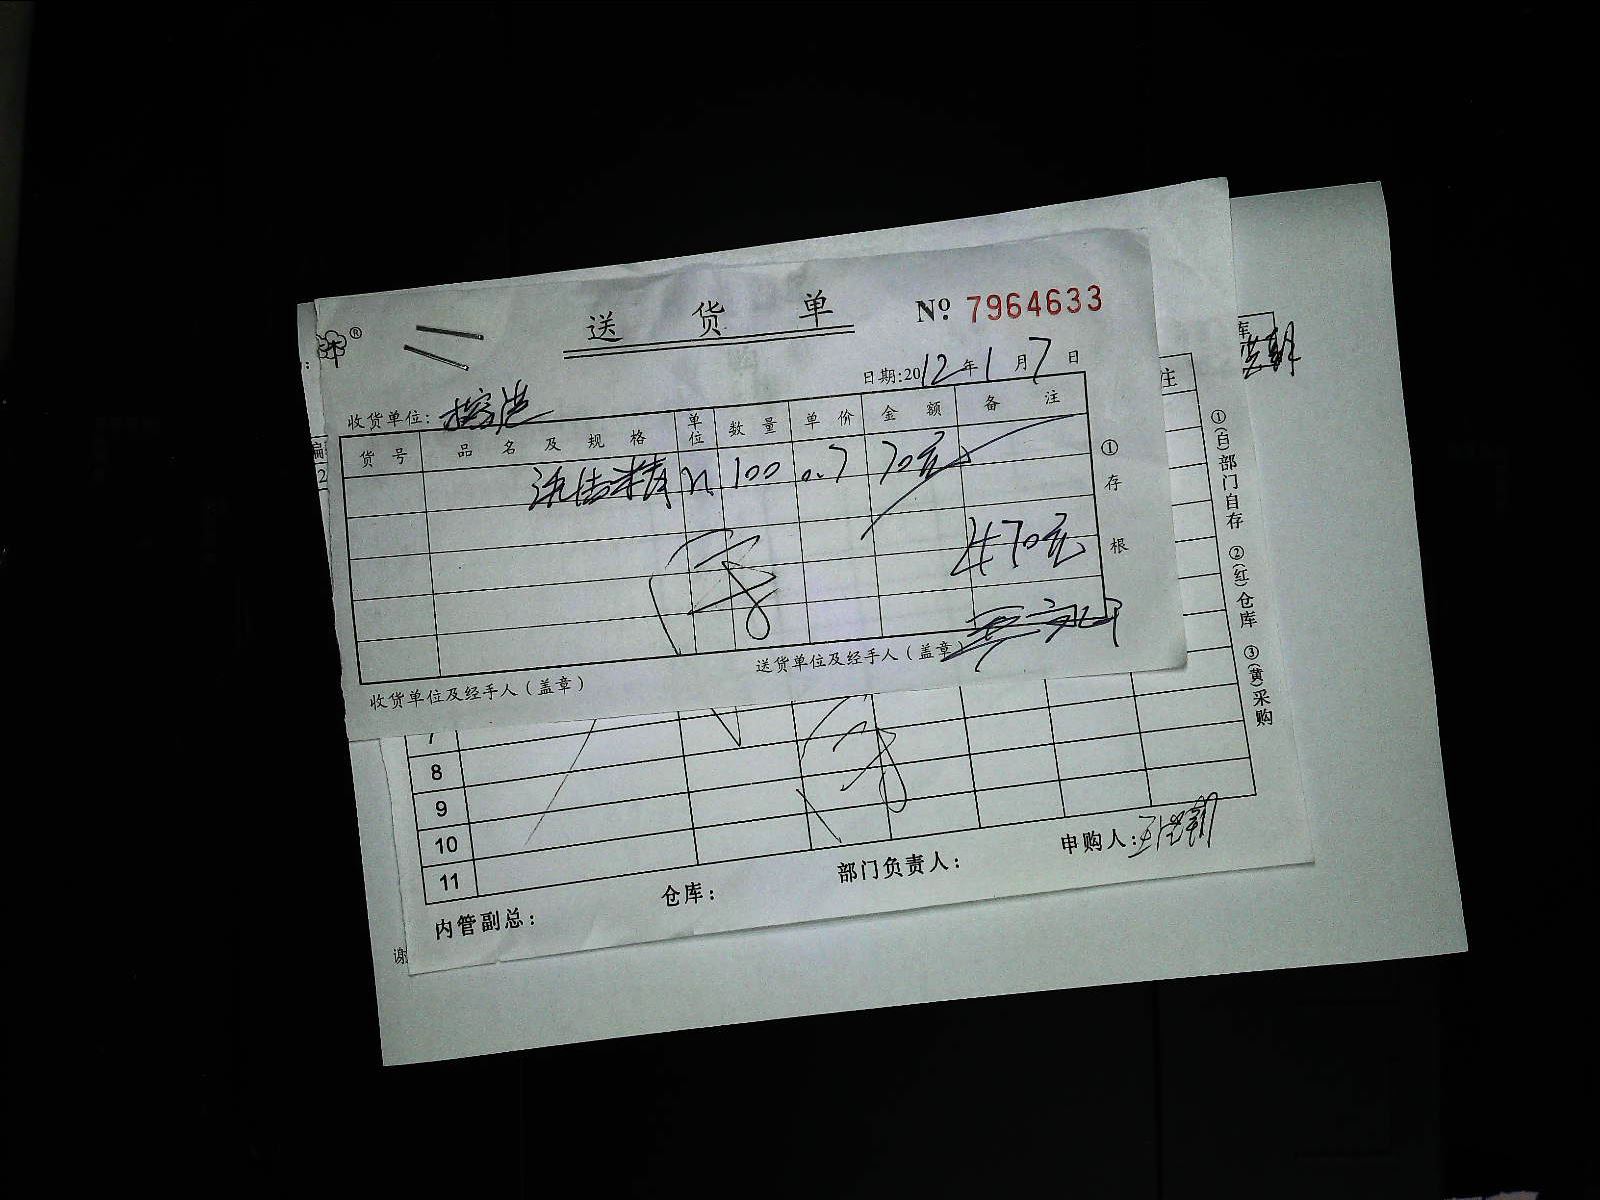 送货单 No. 7964633
日期:2012年1月7日
收货单位:
货号 品名及规格 单位 数量 单价 金额 备注
洗洁精 100 0.7 70元
470元
①存根
收货单位及经手人（盖章） 送货单位及经手人（盖章）
注
7
8
9
10
11
①(白)部门自存 ②(红)仓库 ③(黄)采购
内管副总： 仓库： 部门负责人： 申购人：
谢